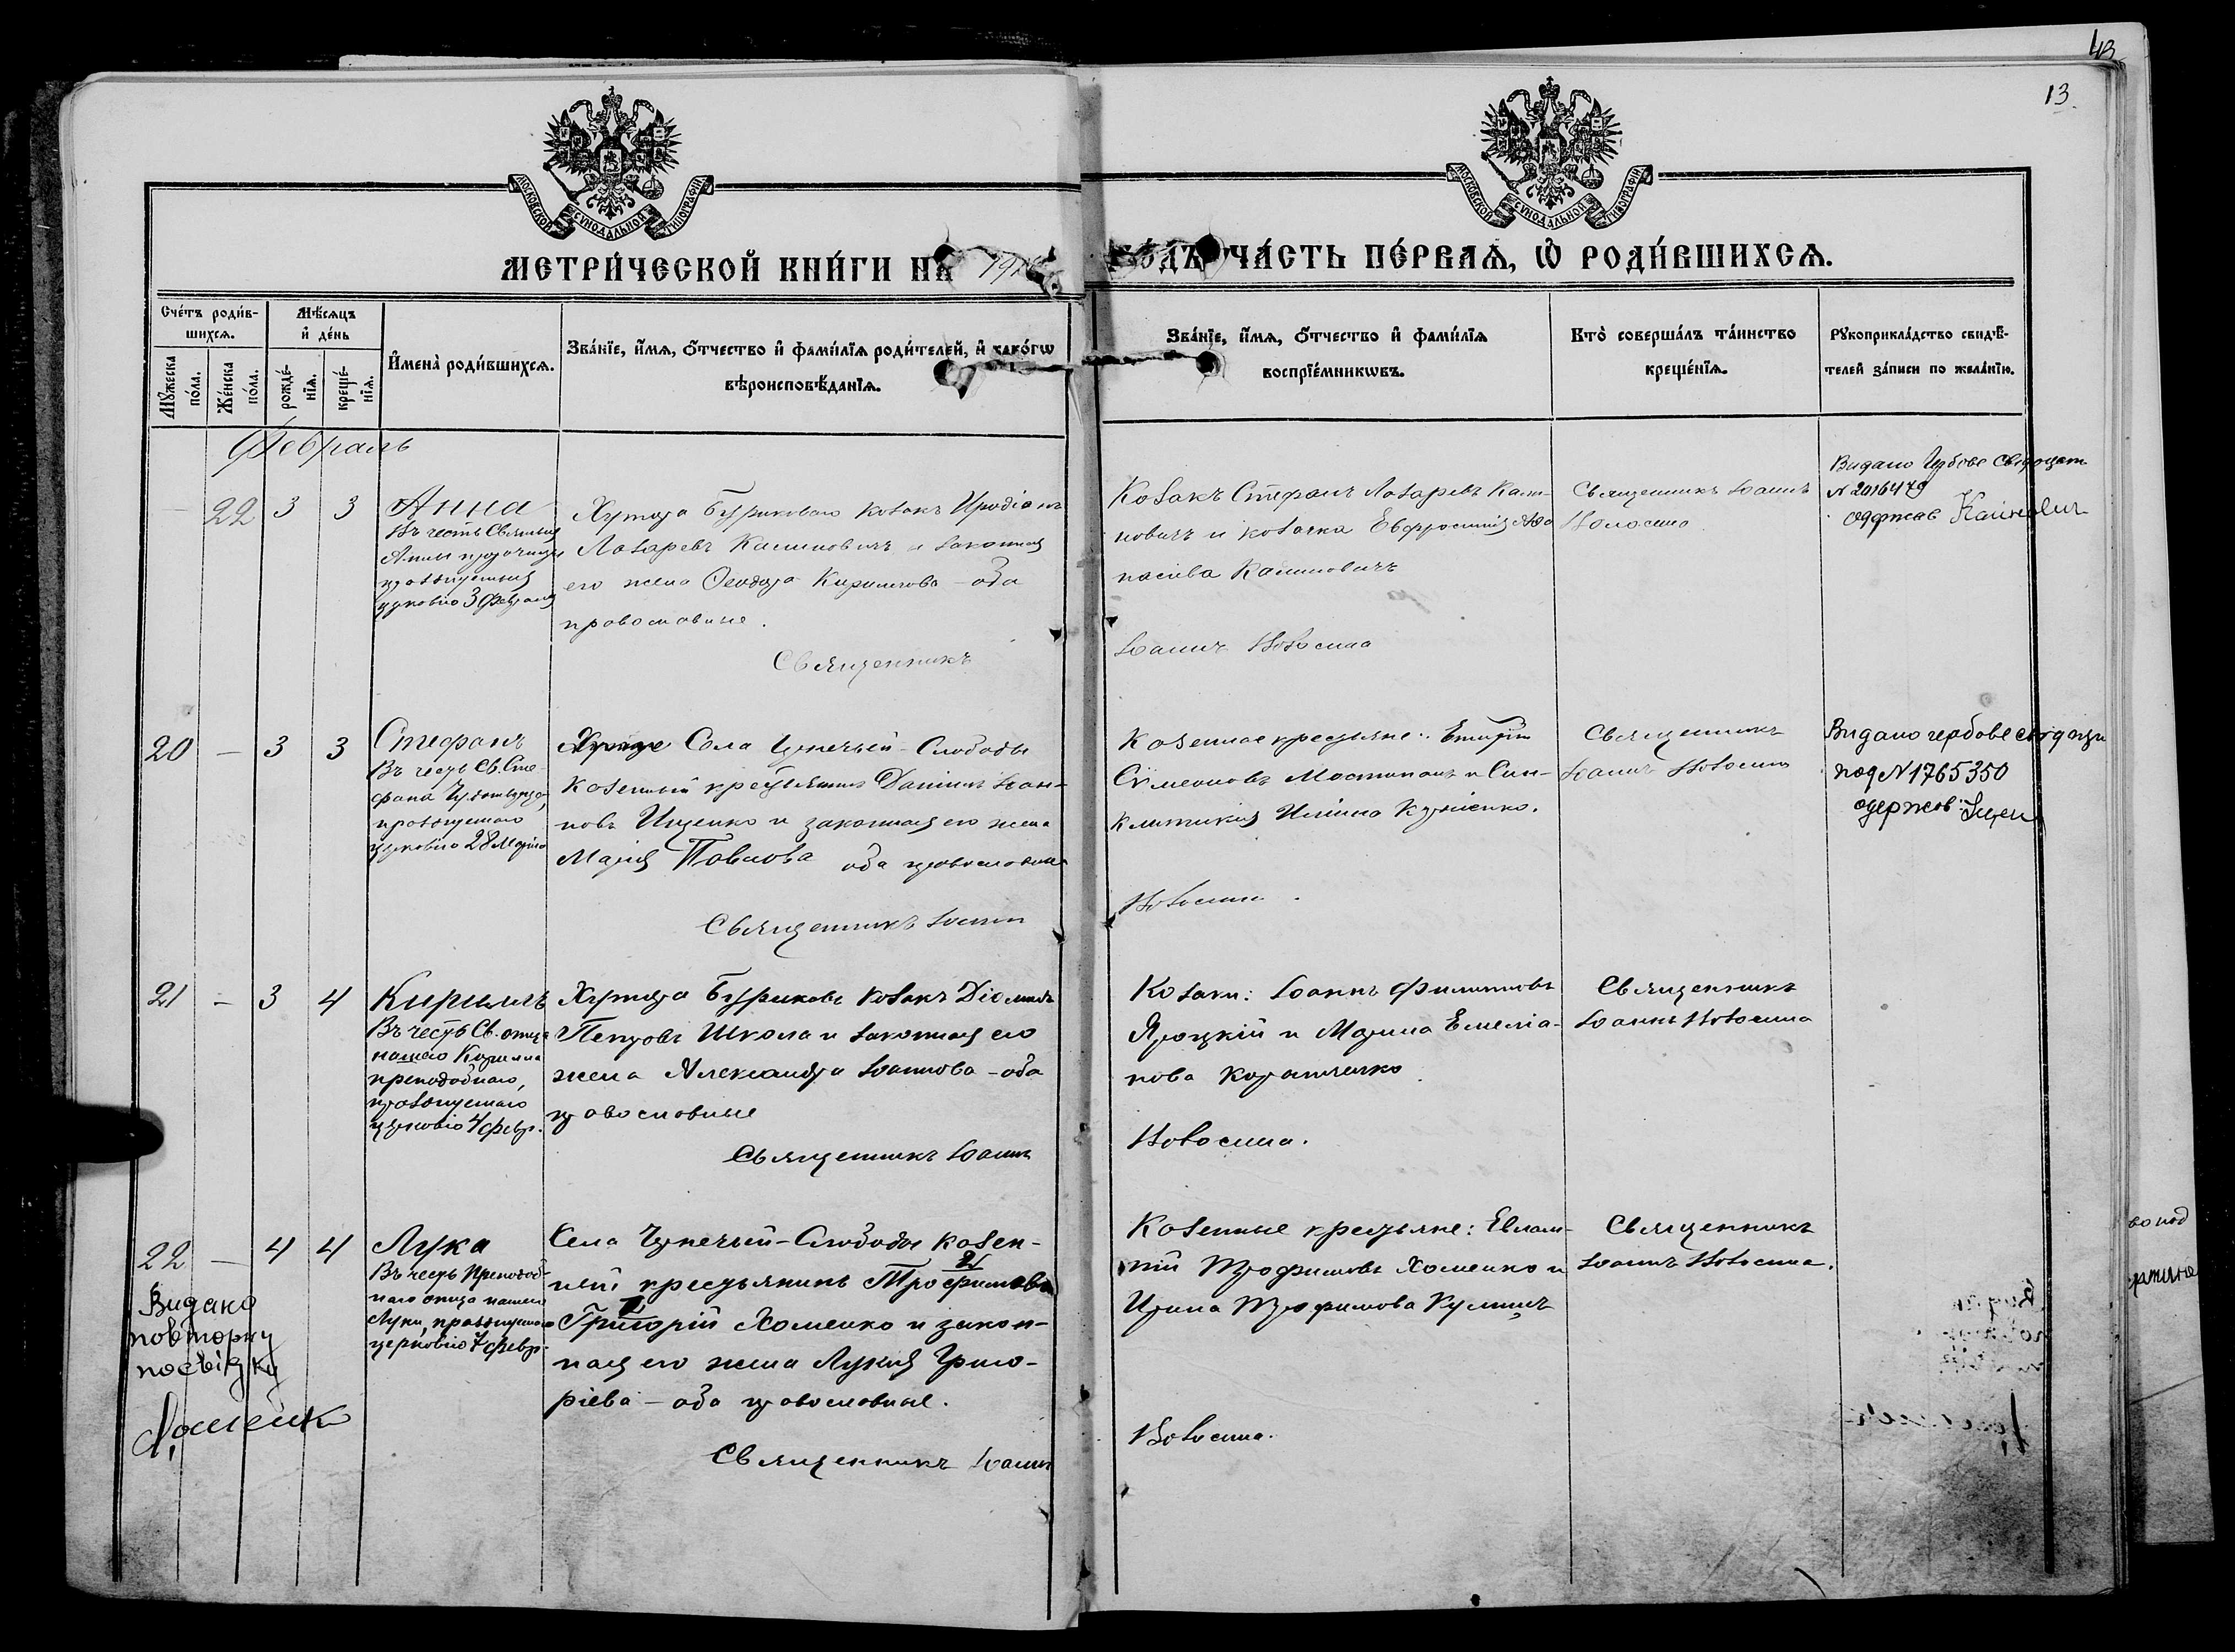 43
13.
МОСКОВСКОЙ СѴНОДАЛЬНОЙ ТИПОГРАФІИ
МОСКОВСКОЙ СѴНОДАЛЬНОЙ ТИПОГРАФІИ
МЕТРИ́ЧЕСКОЙ КНИ́ГИ НА 191
ГО́ДЪ ЧА́СТЬ ПЕ́РВАѦ, Ѡ҆ РОДИ́ВШИХСѦ.
Сче́тъ роди́в-
шихсѧ.
Мꙋ́жеска
по́ла.
Же́нска
по́ла.
Мѣ́сѧцъ
и҆ де́нь
рожде́-
нїѧ.
креще́-
нїѧ.
И҆мена̀ роди́вшихсѧ.
Зва́нїе, и҆́мѧ, ѻ҆́тчество и҆ фами́лїѧ роди́телей, и҆ како́гѡ
вѣроисповѣ́данїѧ.
Зва́нїе, и҆́мѧ, ѻ҆́тчество и҆ фами́лїѧ
воспрїе́мникѡвъ.
Кто̀ соверша́лъ та́инство
креще́нїѧ.
Рꙋкоприкла́дство свидѣ́-
телей за́писи по жела́нїю.
Февраль
— 22 3 3
Анна
Въ честь Святыя
Анны пророчицы
празднуемыя
церковію 3 февраля
Хутора Бурикового козакъ Иродіонъ
Лазаревъ Калиновичъ и законная
его жена Феодора Кириллова – оба
православные.
Священникъ
Козакъ Стефанъ Лазаревъ Кали-
новичъ и козачка Евфросинія
Калиновичъ
Іоаннъ Новосила
Священникъ Іоаннъ
Новосила
Видано Гербове свідоцт
N 2016479
одержав Калінович
20 — 3 3
Стефанъ
Въ честь Св. Сте-
фана Чудотворца,
празднуемаго
церковію 28 Марта
Села Чупечьей-Слободы
козенный крестьянинъ Даніилъ Іоан-
новъ Ищенко и законная его жена
Марія Павлова оба православные
Священникъ Іоаннъ
Козенные крестьяне:
Сѵмеоновъ и Син-
клитикія
Новосила.
Священникъ
Іоаннъ Новосила
Видано гербове свідоцт
под N 1765350
одержав: Іщен
21 — 3 4
Кириллъ
Въ честь Св. отца
нашего Кирилла
преподобнаго,
празднуемаго
церковію 4 февр.
Хутора Бурикова козакъ Діомидъ
Петровъ Школа и законная его
жена Александра Іоаннова – оба
православные
Священникъ Іоаннъ
Козаки: Іоаннъ Филипповъ
Яроцкій и Марина Емеліа-
нова
Новосила.
Священникъ
Іоаннъ Новосила
22 — 4 4
Лука
Въ честь Преподоб-
наго отца нашего
Луки, празднуемаго
церковію 7 февр.
Села Чупечьей-Слободы козен-
ный крестьянинъ Трофимовъ
Григорій Хоменко и закон-
ная его жена Лукія Григо-
ріева – оба православные.
Священникъ Іоаннъ
Козенные крестьяне: Евлам-
пій Трофимовъ Хоменко и
Ирина Трофимова
Новосила.
Священникъ
Іоаннъ Новосила.
Видано
повторну
посвідку
Хоменк